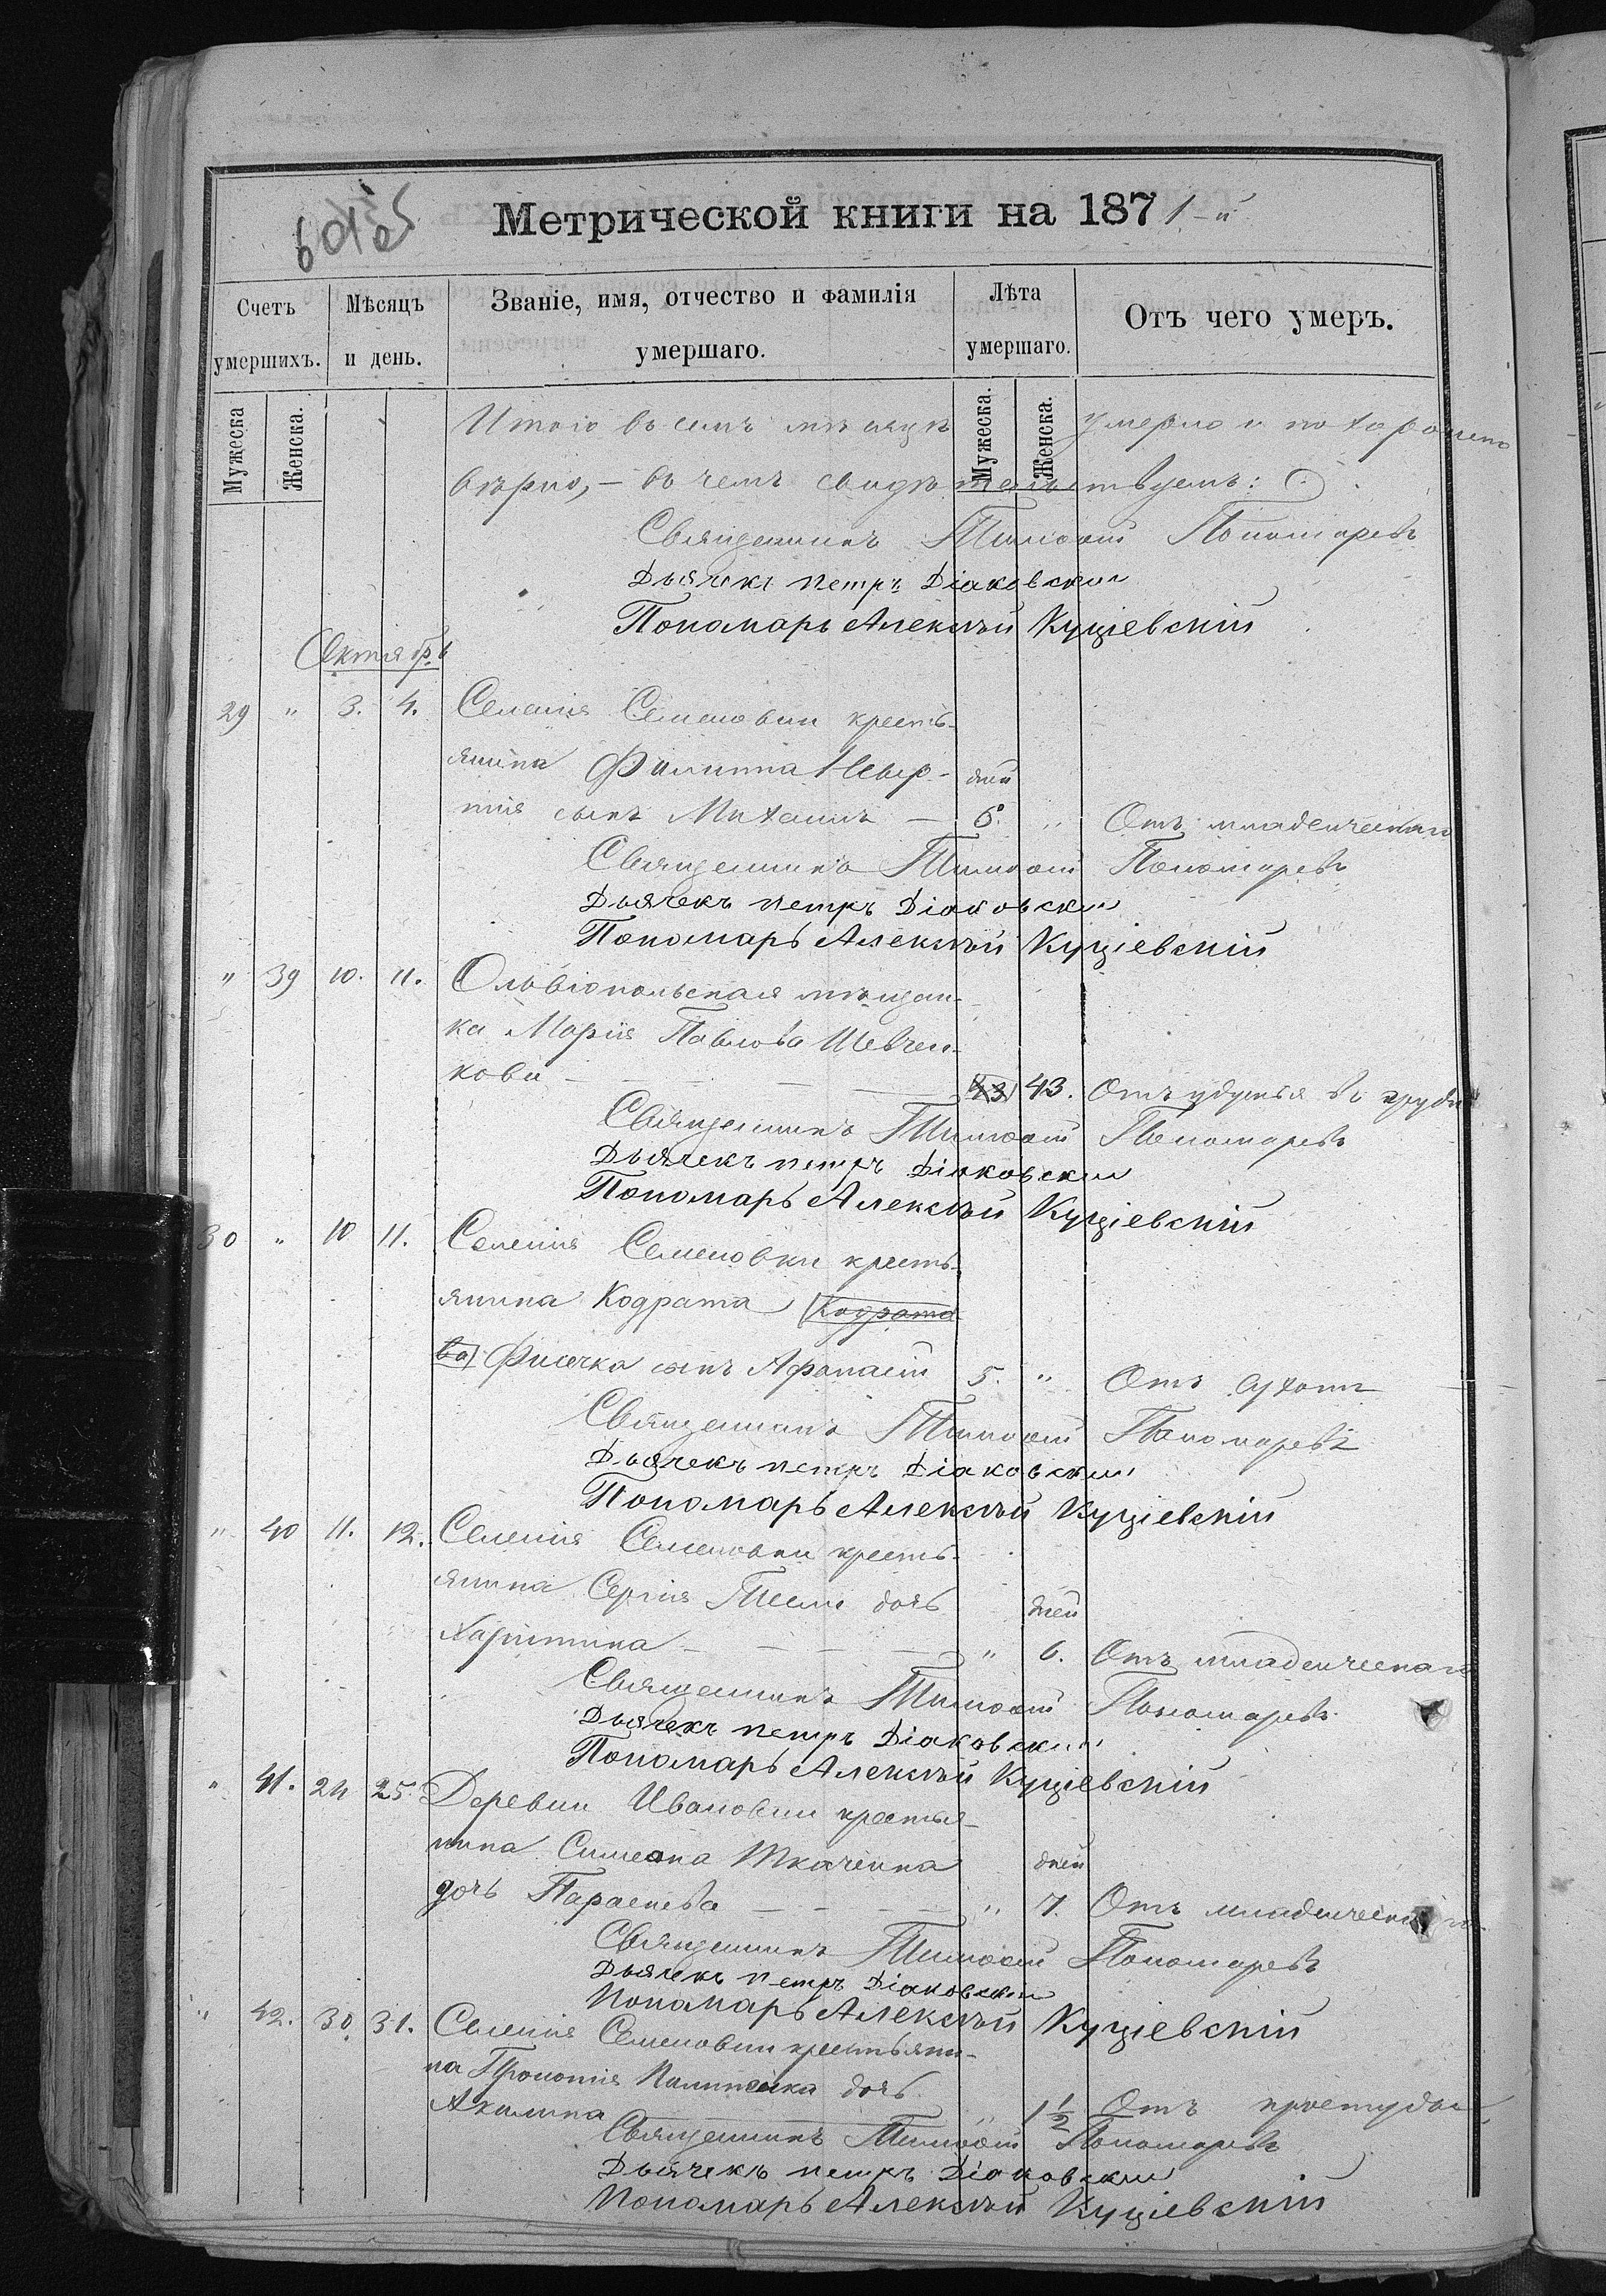 Метрической книги на 1871-й
Счетъ умершихъ.
Мѣсяцъ и день.
Званіе, имя, отчество и фамилія умершаго.
Лѣта умершаго.
Отъ чего умеръ.
Мужеска
Женска.
Мужеска.
Женска.
Итого въ семъ мѣсяцѣ умерло и похоронено
вѣрно, — въ чемъ свидѣтельствуемъ:
Священникъ Тимоѳей Пономаревъ
Дьячекъ Петръ Діаковскій
Пономарь Алексѣй Куціевскій
Октябрь
29 " 3. 4. Селенія Семеновки кресть-
янина Филиппа дней
тія сынъ Михаилъ — 6. " Отъ младенческаго
Священникъ Тимоѳей Пономаревъ
Дьячекъ Петръ Діаковскій
Пономарь Алексѣй Куціевскій
" 39 10. 11. Ольвіопольская мѣщан-
ка Марія Павлова Шевчен-
кова — 43 43. Отъ удушья въ груди
Священникъ Тимоѳей Пономаревъ
Дьячекъ Петръ Діаковскій
Пономарь Алексѣй Куціевскій
30 " 10 11. Селенія Семеновки кресть-
янина Кодрата Кодрата
ва Фисечка сынъ Афанасій 5. " Отъ сухотъ
Священникъ Тимоѳей Пономаревъ
Дьячекъ Петръ Діаковскій
Пономарь Алексѣй Куціевскій
" 40 11. 12. Селенія Семеновки кресть-
янина Сергія дочь дней
Харитина — " 6. Отъ младенческаго
Священникъ Тимоѳей Пономаревъ
Дьячекъ Петръ Діаковскій
Пономарь Алексѣй Куціевскій
" 41. 24 25. Деревни Ивановки крестья-
нина Симеона Ткаченка дней
дочь Параскева — " 7. Отъ младенческаго
Священникъ Тимоѳей Пономаревъ
Дьячекъ Петръ Діаковскій
Пономарь Алексѣй Куціевскій
" 42. 30. 31. Селенія Семеновки крестьяни-
на Прокопія дочь
Акилина " 1½ Отъ простуды
Священникъ Тимоѳей Пономаревъ
Дьячекъ Петръ Діаковскій
Пономарь Алексѣй Куціевскій